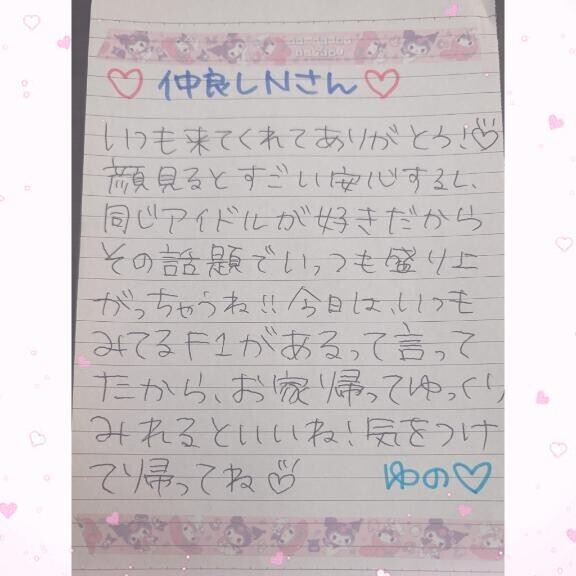 ♡ 仲良しNさん ♡
いつも来てくれてありがとう!♡
顔見るとすごい安心するし、
同じアイドルが好きだから
その話題でいっつも盛り上
がっちゃうね!!今日は、いつも
みてるF1があるって言って
たから、お家帰ってゆっくり
みれるといいね!気をつけ
て帰ってね♡
ゆの♡